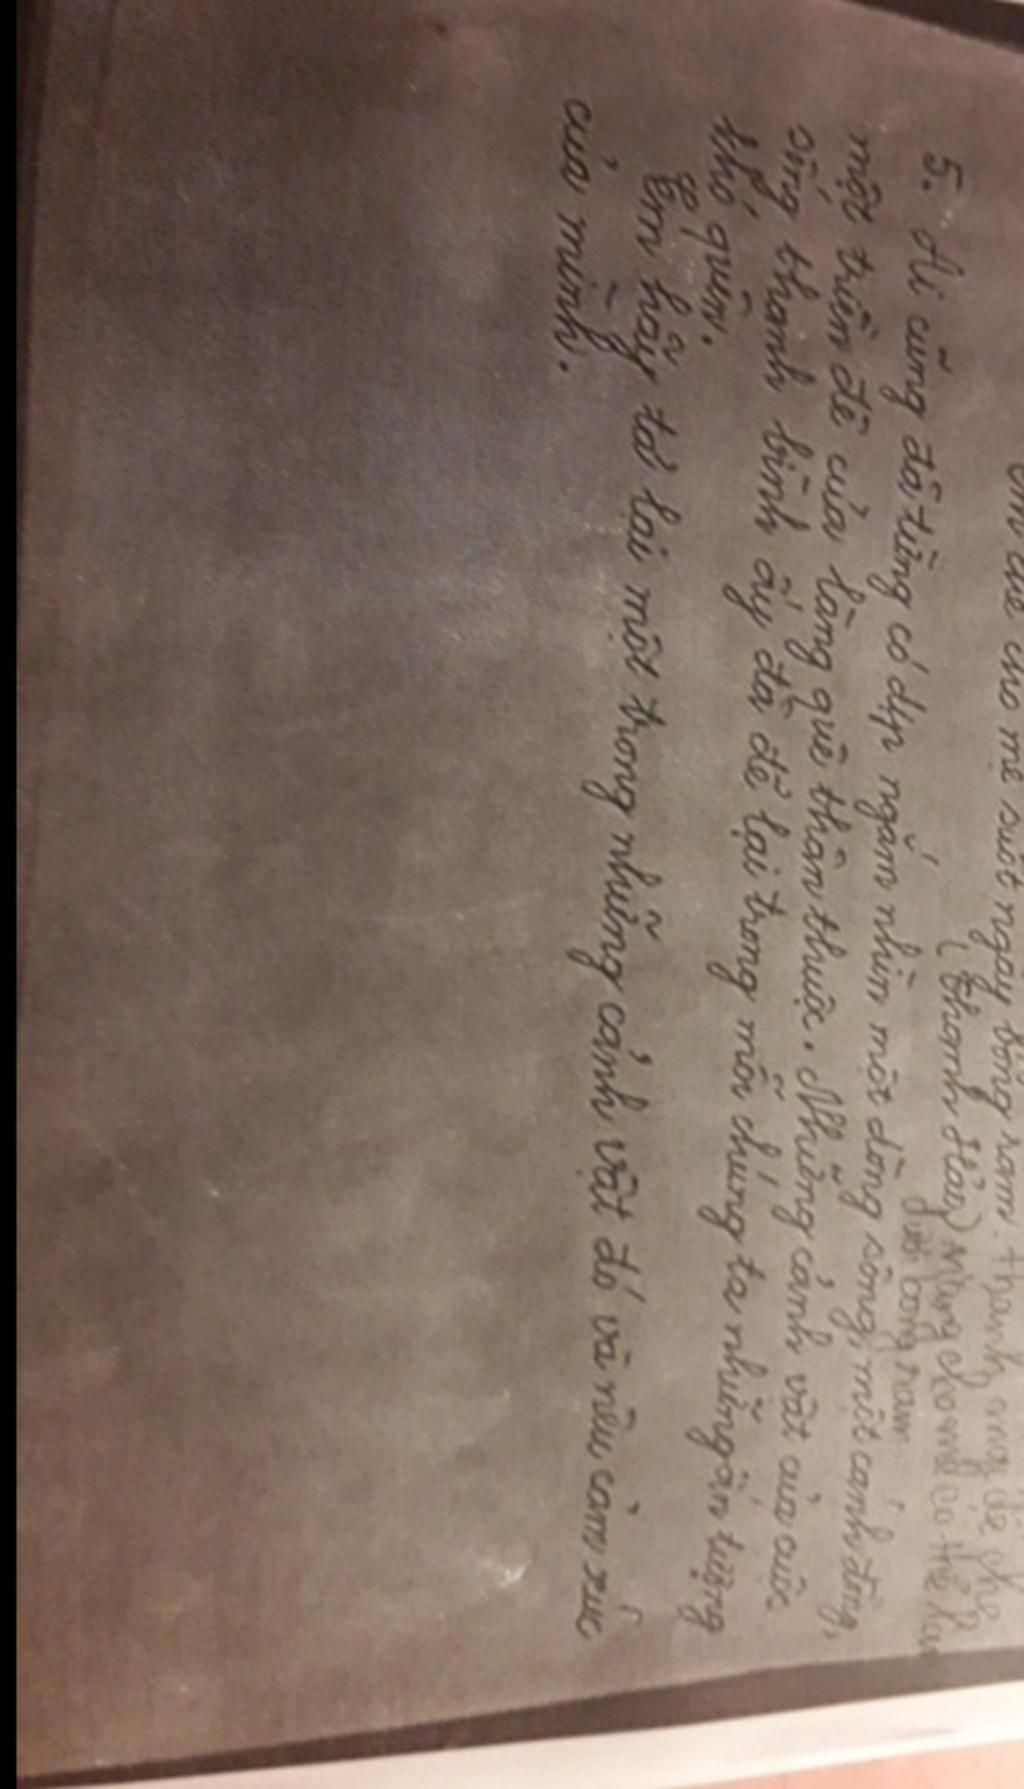 cho mẹ suốt ngày
(Thanh Hào)
5. Ai cũng đã từng có dịp ngắm nhìn một dòng sông, một cánh đồng,
một triền đê của làng quê thân thuộc. Những cảnh vật của cuộc
sống thanh bình ấy đã để lại trong mỗi chúng ta những ấn tượng
khó quên.
Em hãy tả lại một trong những cảnh vật đó và nêu cảm xúc
của mình.